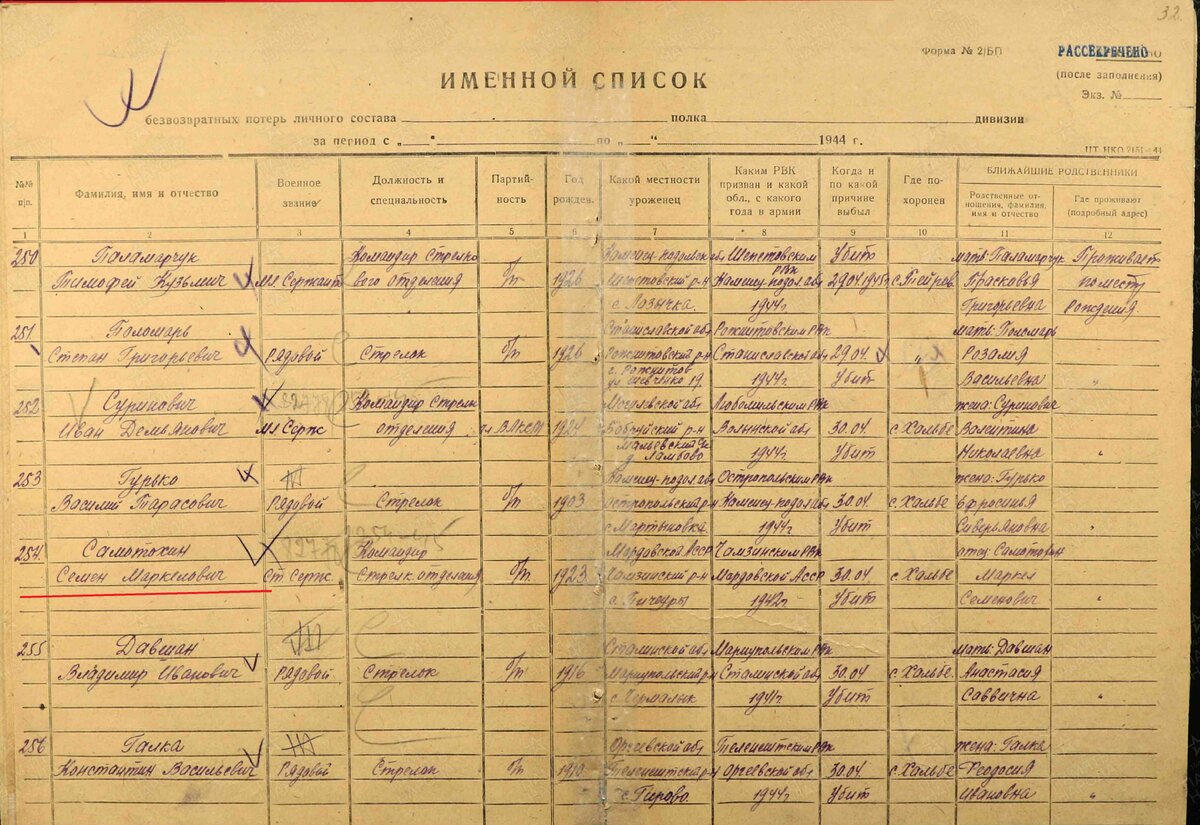 32.
Форма № 2/БП
РАССЕКРЕЧЕНО
(после заполнения)
Экз. №
ИМЕННОЙ СПИСОК
безвозвратных потерь личного состава полка дивизии
за период с „ “ по „ “ 1944 г.
№№ п/п.
Фамилия, имя и отчество
Военное звание
Должность и специальность
Партий-ность
Год рожден.
Какой местности уроженец
Каким РВК призван и какой обл., с какого года в армии
Когда и по какой причине выбыл
Где по-хоронен
БЛИЖАЙШИЕ РОДСТВЕННИКИ
Родственные от-ношения, фамилия, имя и отчество
Где проживают (подробный адрес)
1 2 3 4 5 6 7 8 9 10 11 12
250 Паламарчук Командир Стрелко Каменец-подольск обл Шепетовским РВК Убит мать: Паламарчук Проживает
Тимофей Кузьмич Мл Сержант вого отделения б/п 1926 р-н Каменец-подол обл 29.04.1945г Прасковья по месту
с. 1944г. Григорьевна Рождения.
251 Поломарь Станиславской обл РВК мать: Поломарь
Степан Григорьевич Рядовой Стрелок б/п 1926 р-н Станиславской обл 29.04 „ Розалия
г. ул Шевченко 19. 1944г Убит Васильевна „
252 Суринович Командир Стрелк Могилевской обл Любомльским РВК жена: Суринович
Иван Демьянович Мл Серж отделения чл ВЛКСМ 1924 р-н Волынской обл 30.04 с. Хальбе Валентина
1944г Убит Николаевна „
253 Гурько Каменец-подол обл Остропольским РВК жена: Гурько
Василий Тарасович Рядовой Стрелок б/п 1903 Остропольский р-н Каменец-подол обл 30.04 с. Хальбе Ефросиния
с. Мартыновка 1944г Убит Северьяновна „
254 Самотокин Командир Мордовской АССР Чамзинским РВК отец Самотокин
Семен Маркелович Ст Серж. Стрелк. отделения б/п 1923 Чамзинский р-н Мордовской АССР 30.04 с. Хальбе Маркел
с. Пичеуры 1942г Убит Семенович „
255 Давшан Сталинской обл Мариупольским РВК мать: Давшан
Владимир Иванович Рядовой Стрелок б/п 1916 Мариупольский р-н Сталинской обл 30.04 с. Хальбе Анастасия
с. Чермалык 1941г. Убит Саввична „
256 Галка Оргеевской обл Теленештским РВК жена: Галка
Константин Васильевич Рядовой Стрелок б/п 1910 Теленештский р-н Оргеевской обл 30.04 с. Хальбе Феодосия
1944г Убит Ивановна „